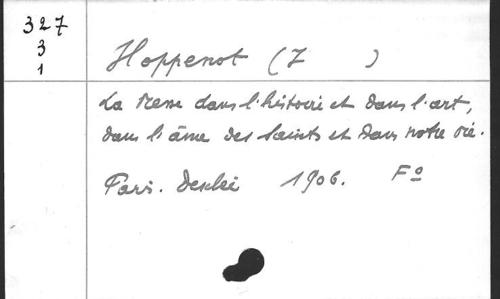 327
3
1
Hoppenot (J )
La Messe dans l'histoire et dans l'art,
dans l'âme des saints et dans notre vie.
Paris. Desclée 1906. Fº